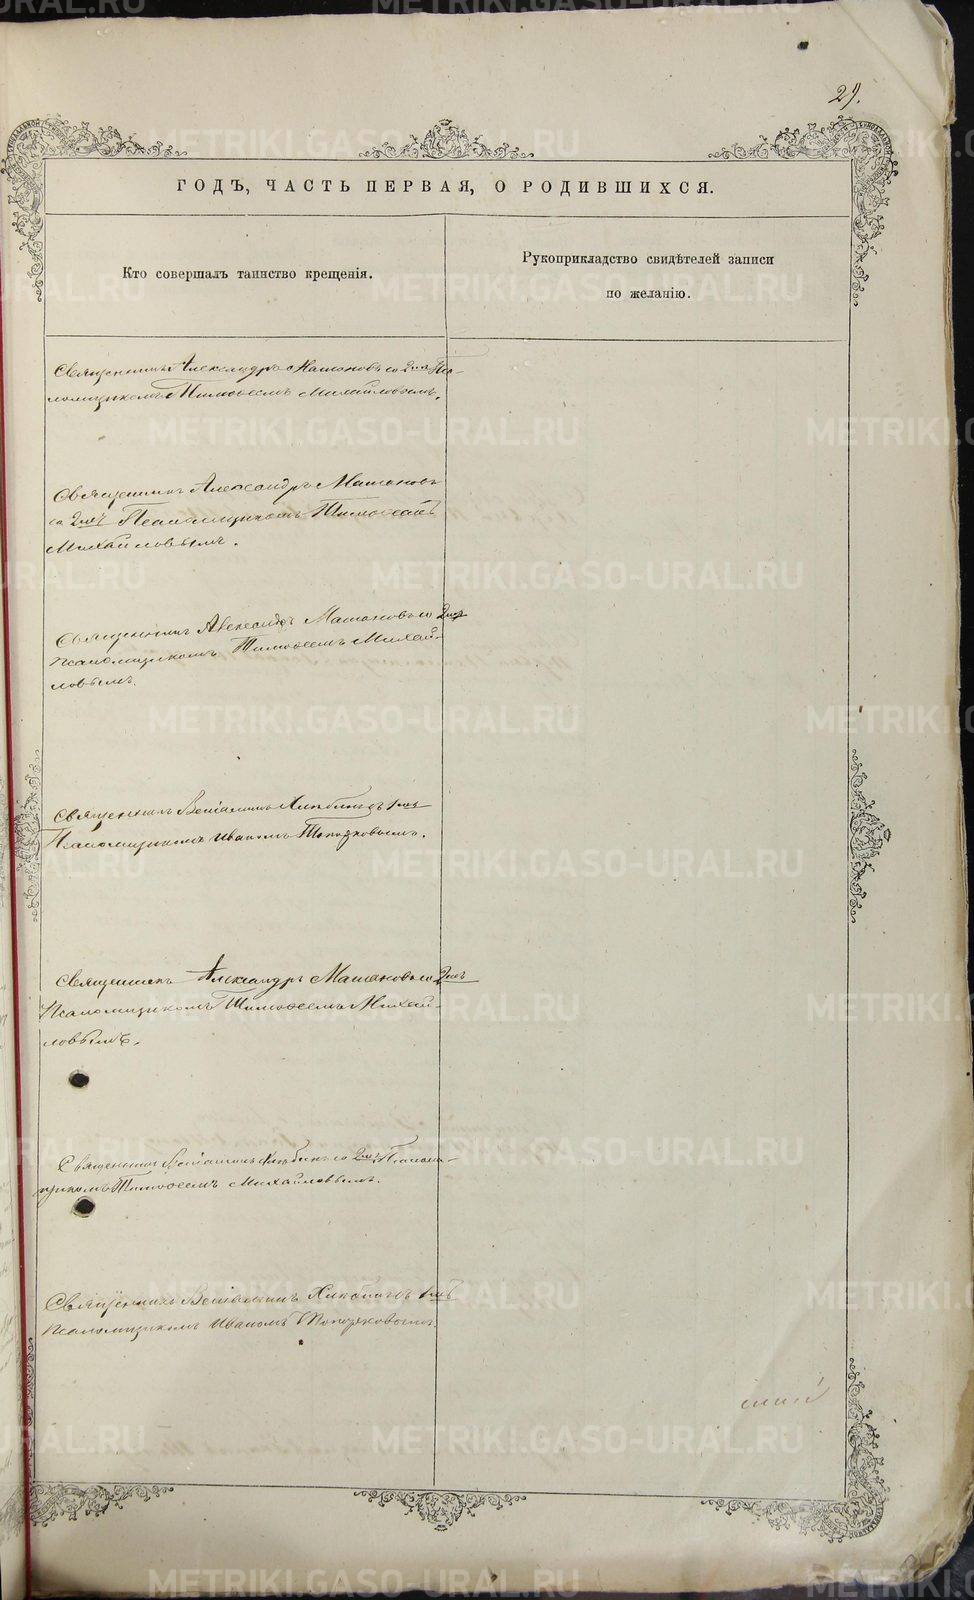 29.
ГОДЪ, ЧАСТЬ ПЕРВАЯ, О РОДИВШИХСЯ.
Кто совершалъ таинство крещенія.
Рукоприкладство свидѣтелей записи
по желанію.
Священникъ Александръ Матановъ со 2мъ Пса-
ломщикомъ Тимоѳеемъ Михайловымъ.
Священникъ Александръ Матановъ
со 2мъ Псаломщикомъ Тимоѳеемъ
Михайловымъ.
Священникъ Александръ Матановъ со 2мъ
псаломщикомъ Тимоѳеемъ Михай-
ловымъ.
Священникъ Веніаминъ 1мъ
Псаломщикомъ Иваномъ Топорковымъ.
Священникъ Александръ Матановъ со 2мъ
Псаломщикомъ Тимоѳеемъ Михай-
ловымъ.
Священникъ Веніаминъ со 2мъ Псалом-
щикомъ Тимоѳеемъ Михайловымъ.
Священникъ Веніаминъ 1мъ
псаломщикомъ Иваномъ Топорковымъ.
METRIKI.GASO-URAL.RU